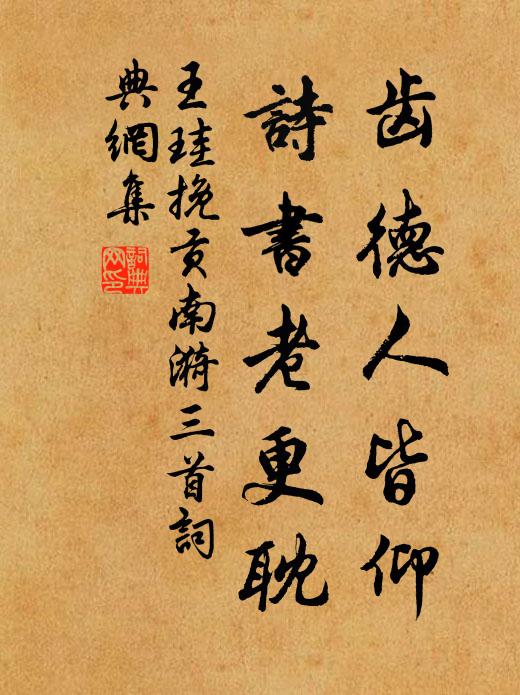 齿德人皆仰
詩書老更耽
王珪挽贡南漪三首詞
典網集
詞典網印